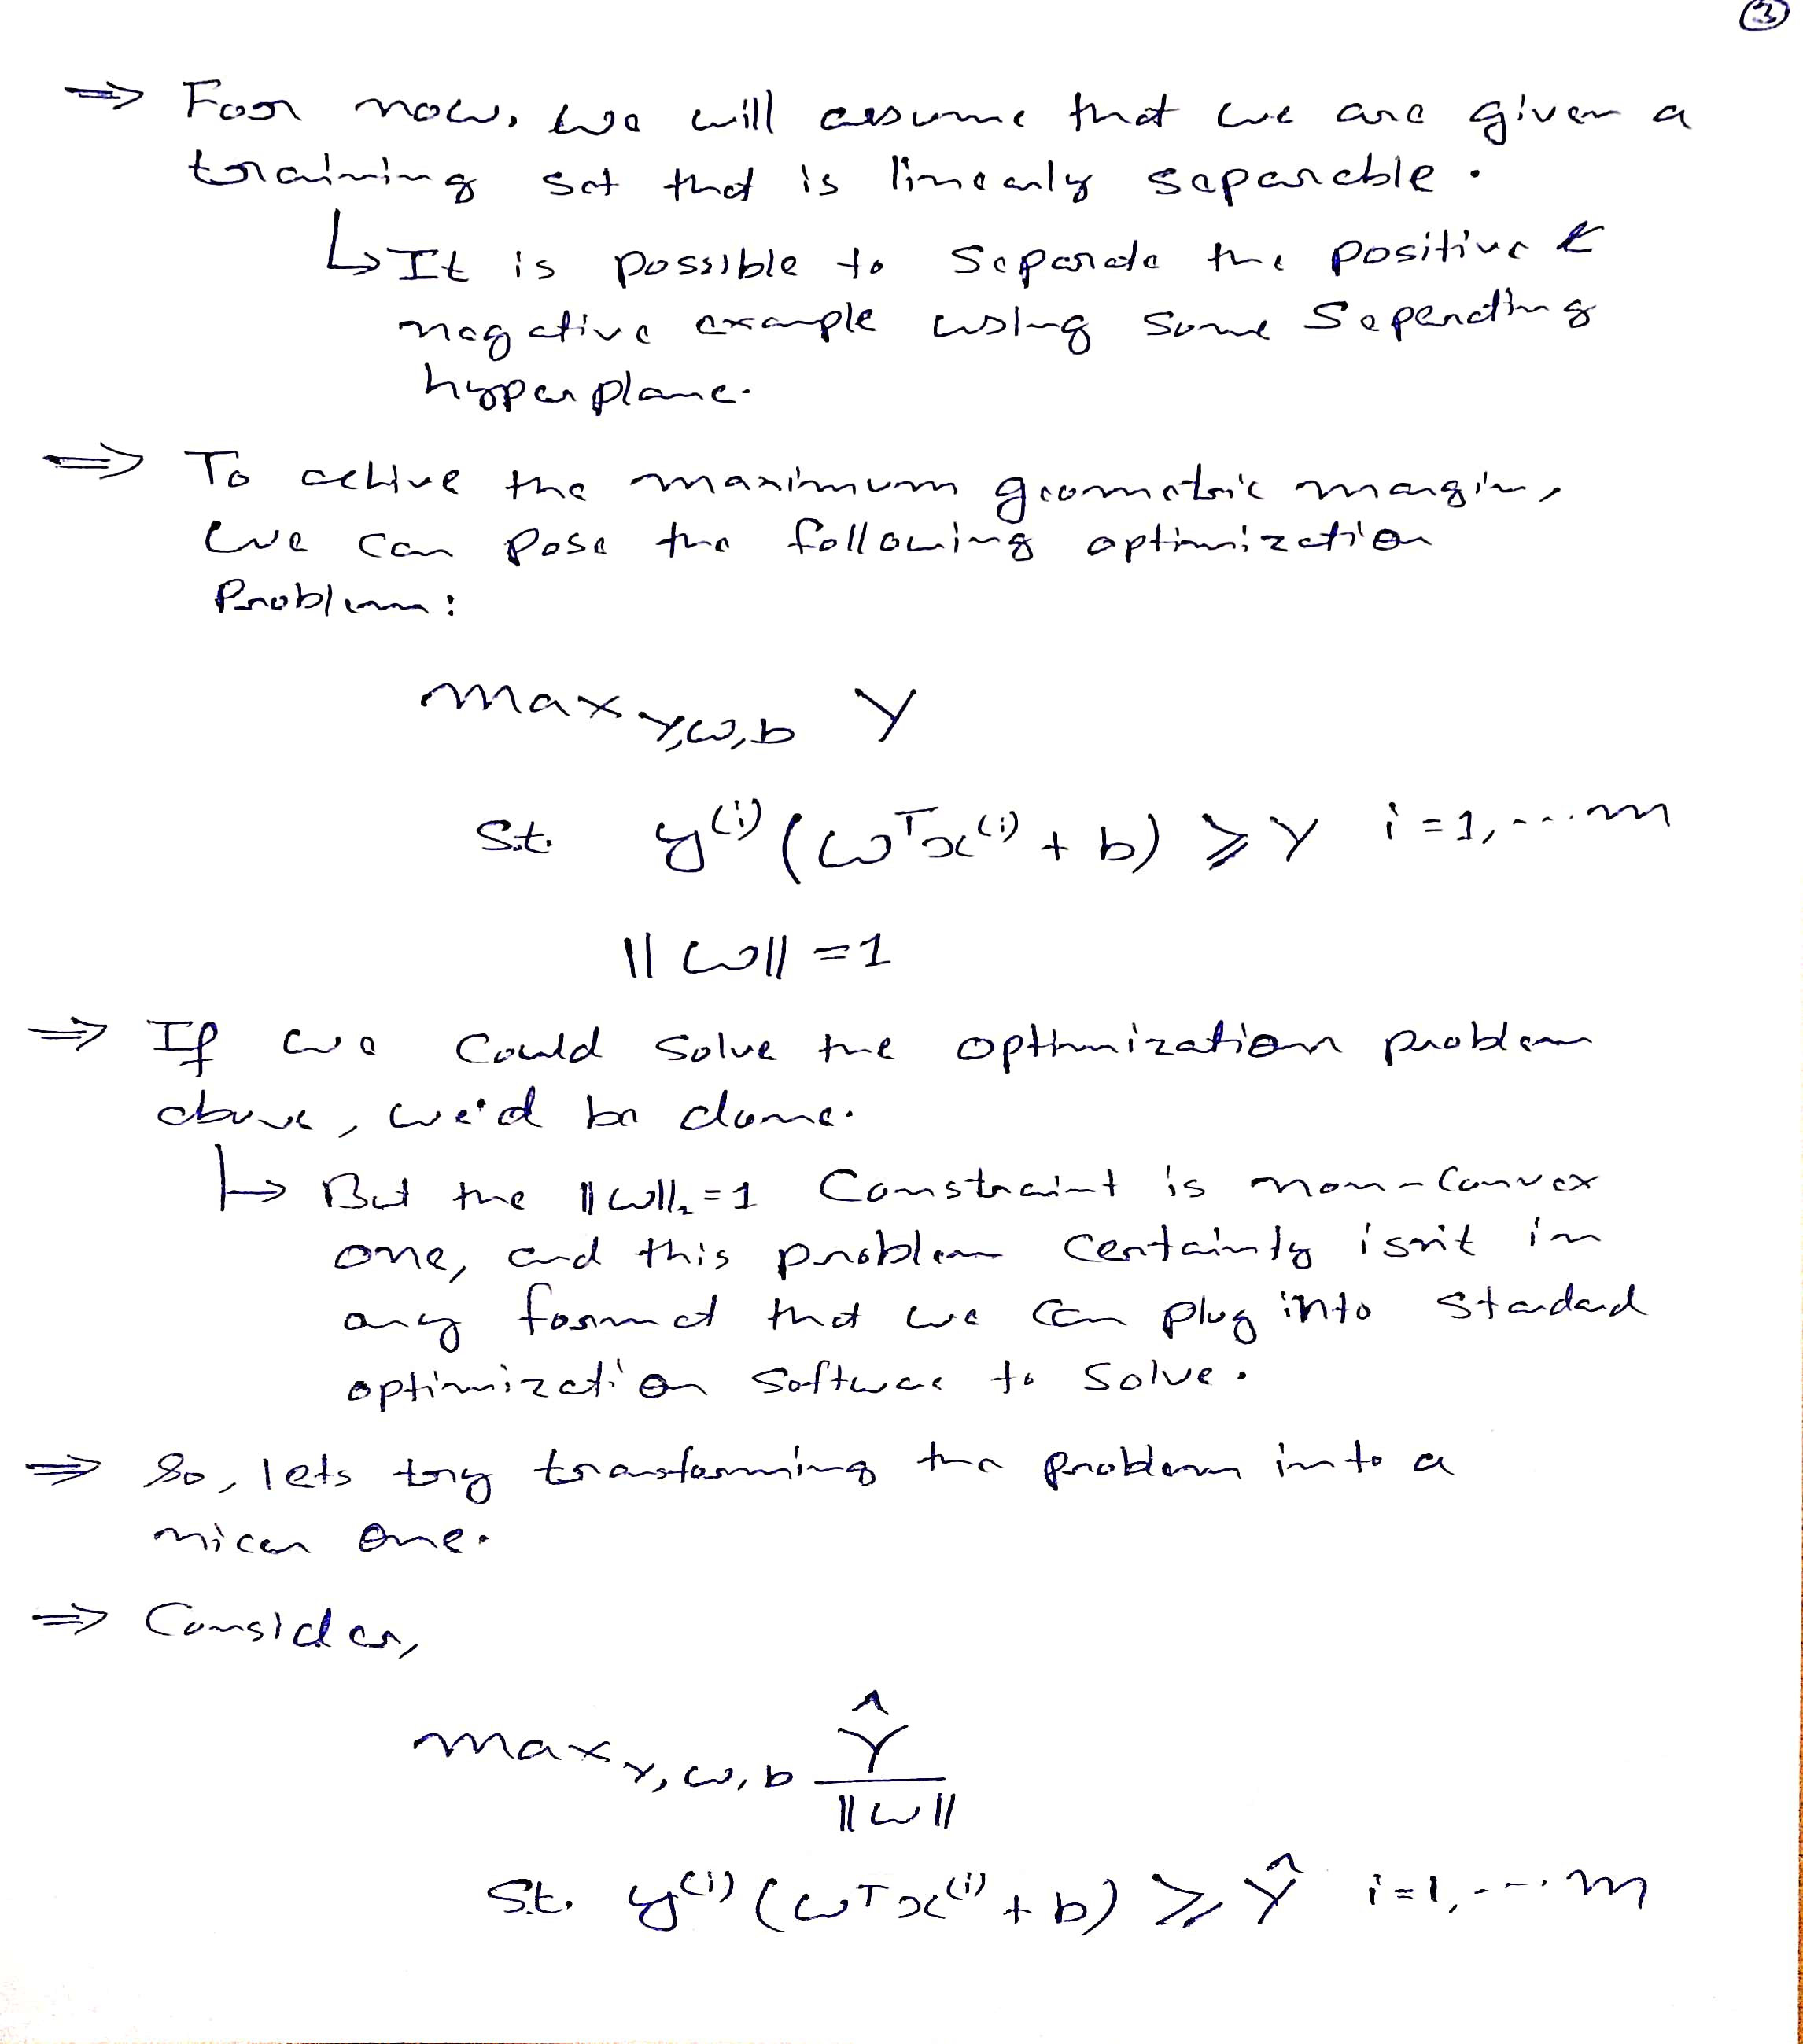 ③
⇒ For now, we will assume that we are given a
training set that is linearly separable.
↳ It is possible to separate the positive &
negative example using some separating
hyperplane.
⇒ To achive the maximum geometric margin,
we can pose the following optimization
Problem:
max γ,w,b γ
S.t. y⁽ⁱ⁾ (wᵀx⁽ⁱ⁾ + b) ≥ γ i = 1, ... m
||w|| = 1
⇒ If we could solve the optimization problem
above, we'd be done.
↳ But the ||w||₂ = 1 Constraint is non-convex
one, and this problem certainly isn't in
any format that we can plug into standard
optimization software to solve.
⇒ So, lets try transforming the problem into a
nicer one.
⇒ Consider,
max γ,w,b γ̂
||w||
S.t. y⁽ⁱ⁾ (wᵀx⁽ⁱ⁾ + b) ≥ γ̂ i = 1, ... m